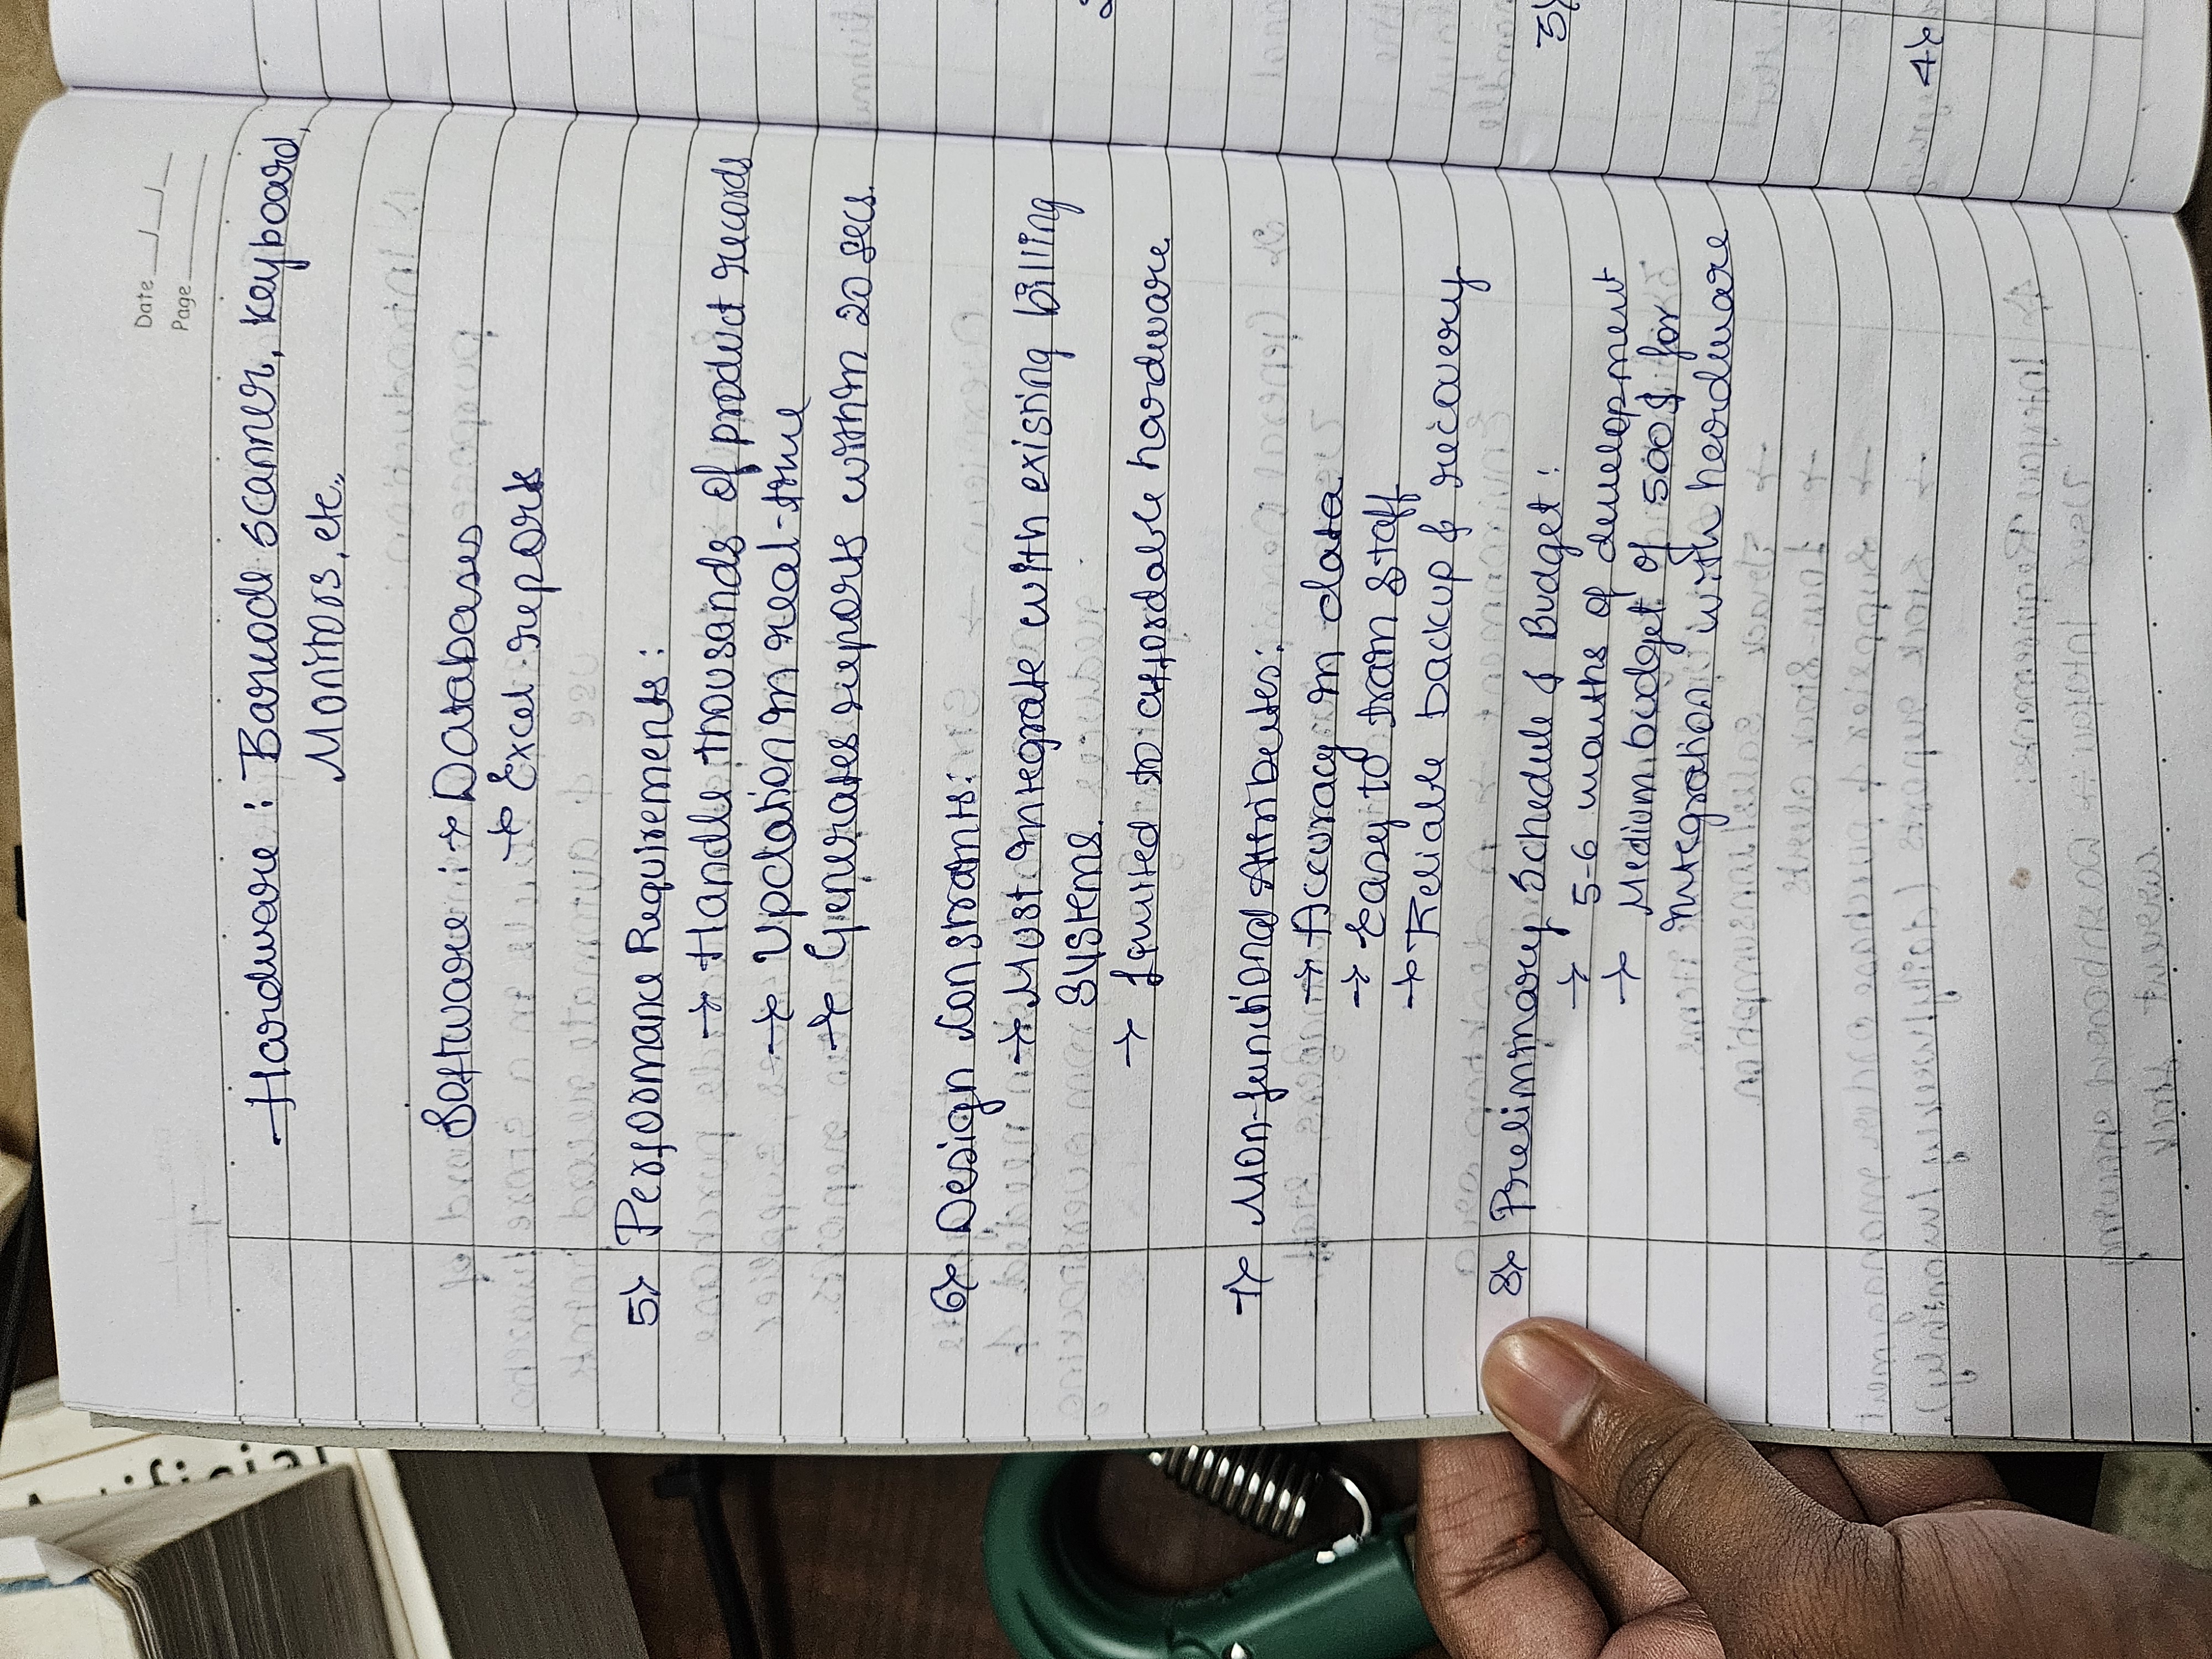 Date __/__/__
Page
Hardware : Barcode scanner, keyboard,
Monitors, etc.
Software : → Databases
→ Excel reports
5) Performance Requirements :
→ Handle thousands of product records
→ Updation in real-time
→ Generates reports within 20 secs.
6) Design Constraints:
→ Must integrate with existing billing
systems.
→ Limited to affordable hardware
7) Non-functional Attributes:
→ Accuracy in data
→ Easy to train staff
→ Reliable backup & recovery
8) Preliminary Schedule & Budget :
→ 5-6 months of development
→ Medium budget of 500$ for
integration with hardware
3)
4)